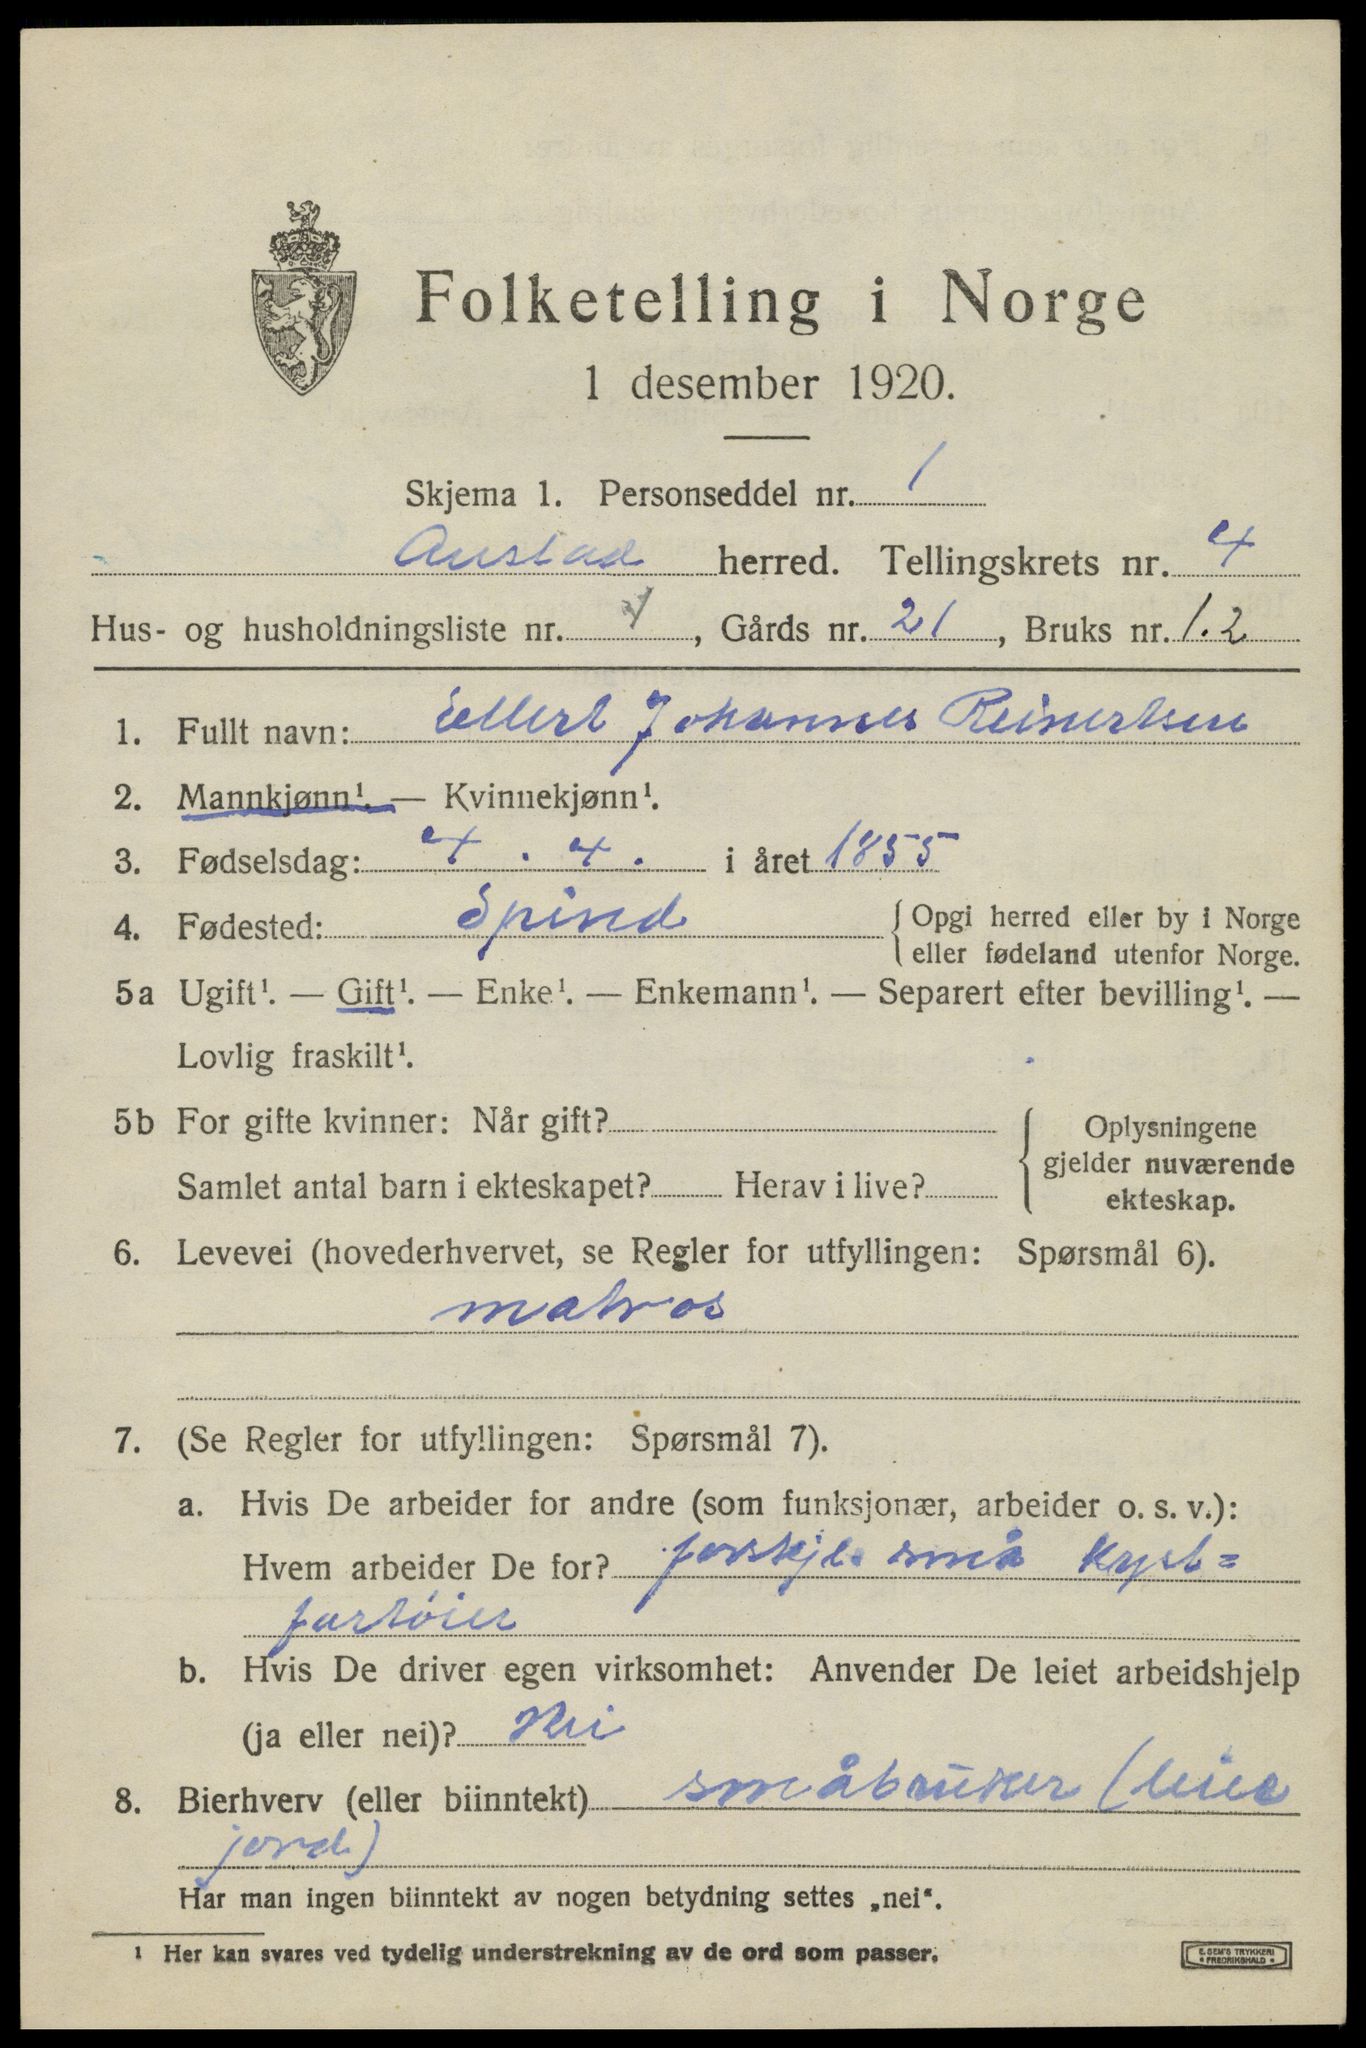 Folketelling i Norge
1 desember 1920.
Skjema 1. Personseddel nr. 1
Austad herred. Tellingskrets nr. 4
Hus- og husholdningsliste nr. , Gårds nr. 21, Bruks nr. 1.2
1. Fullt navn: Ellert Johannes Reinertsen
2. Mannkjønn¹. — Kvinnekjønn¹.
3. Fødselsdag: 4. 4. i året 1855
4. Fødested: Spind { Opgi herred eller by i Norge
eller fødeland utenfor Norge.
5a Ugift¹. — Gift¹. — Enke¹. — Enkemann¹. — Separert efter bevilling¹. —
Lovlig fraskilt¹.
5b For gifte kvinner: Når gift? { Oplysningene
gjelder nuværende
Samlet antal barn i ekteskapet? Herav i live?
ekteskap.
6. Levevei (hovederhvervet, se Regler for utfyllingen: Spørsmål 6).
matros
7. (Se Regler for utfyllingen: Spørsmål 7).
a. Hvis De arbeider for andre (som funksjonær, arbeider o. s. v.):
Hvem arbeider De for? forskjl. små kyst=
fartöier
b. Hvis De driver egen virksomhet: Anvender De leiet arbeidshjelp
(ja eller nei)? Nei
8. Bierhverv (eller biinntekt) småbruker (leiee
jord)
Har man ingen biinntekt av nogen betydning settes „nei“.
1 Her kan svares ved tydelig understrekning av de ord som passer.
E. SEM'S TRYKKERI
* FREDRIKSHALD *